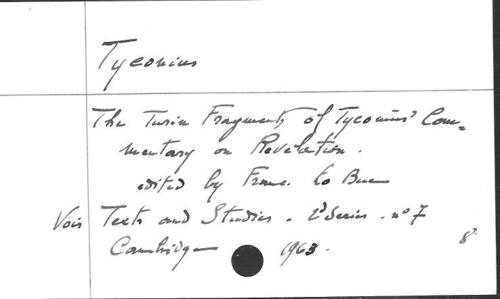 Tyconius
The Turin Fragments of Tyconius' Com=
mentary on Revelation.
edited by Franc. Lo Bue
Voir Texts and Studies - 2d Series - nº 7
Cambridge 1963. 8º